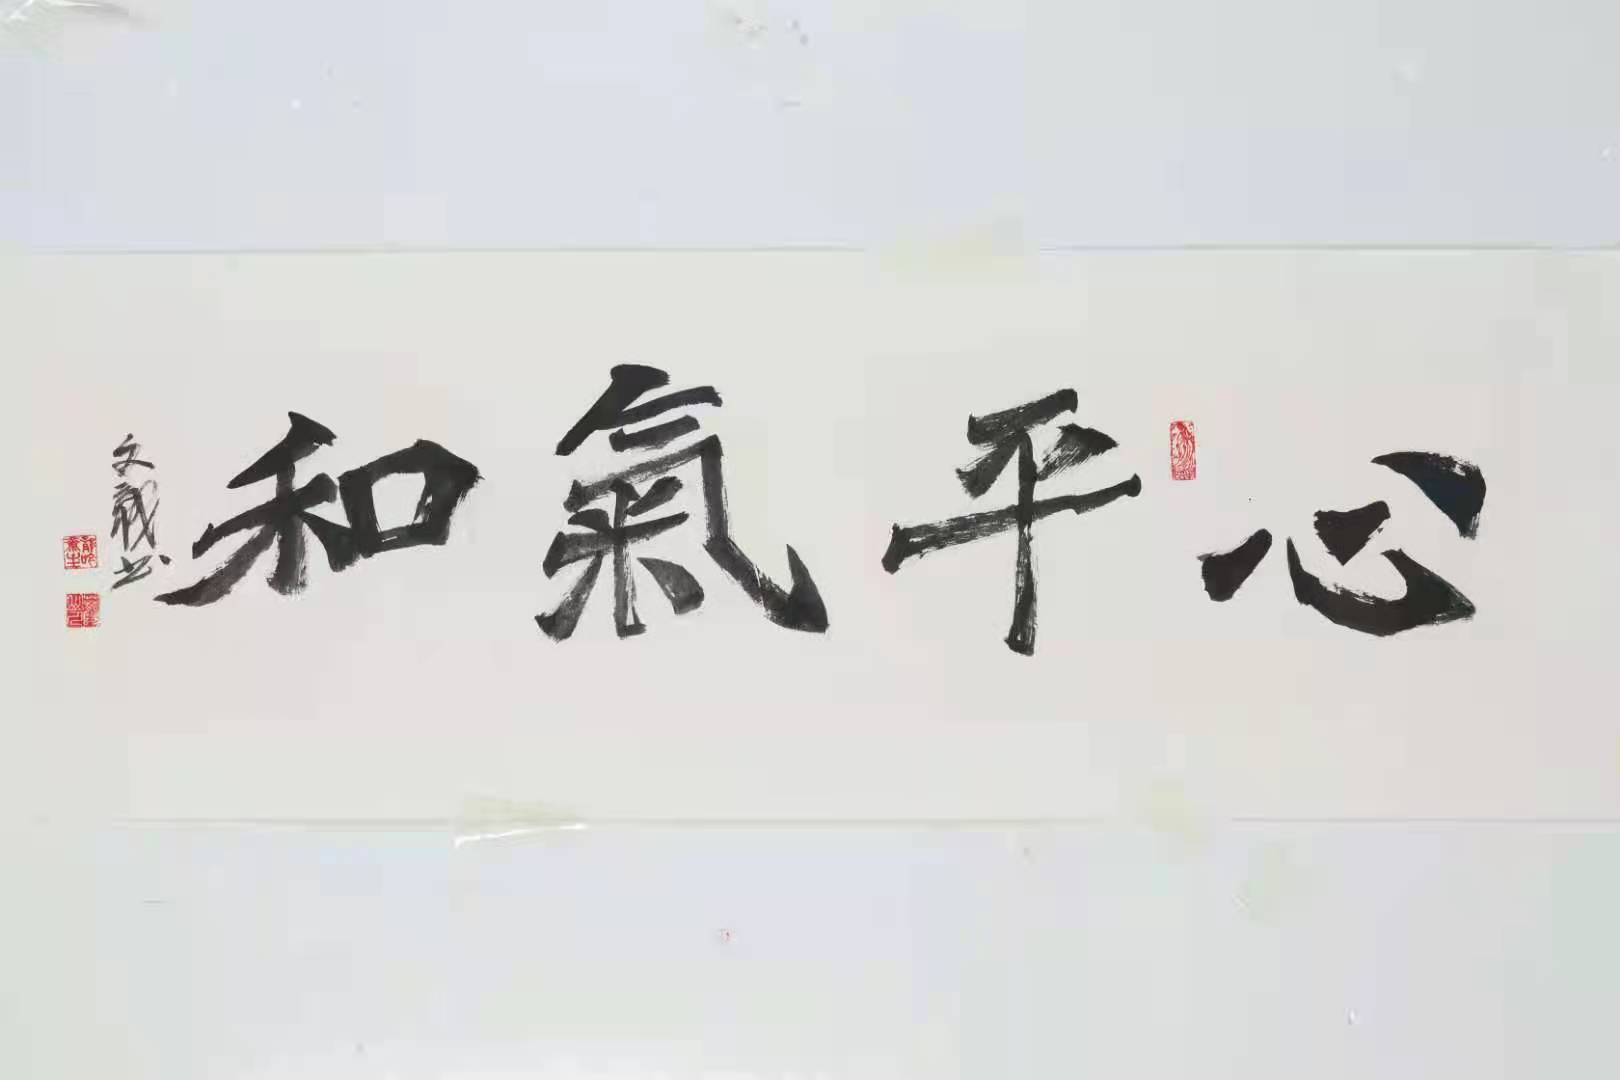 心平氣和
文義书